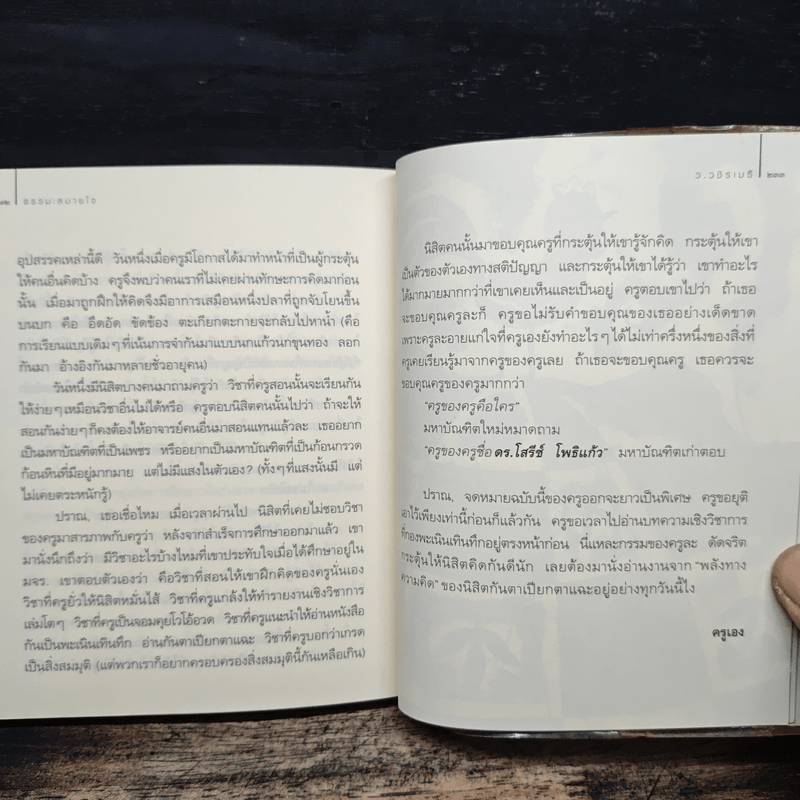 ๓๒ ธรรมะสบายใจ
อุปสรรคเหล่านี้ดี วันหนึ่งเมื่อครูมีโอกาสได้มาทำหน้าที่เป็นผู้กระตุ้น
ให้คนอื่นคิดบ้าง ครูจึงพบว่าคนเราที่ไม่เคยผ่านทักษะการคิดมาก่อน
นั้น เมื่อมาถูกฝึกให้คิดจึงมีอาการเสมือนหนึ่งปลาที่ถูกจับโยนขึ้น
บนบก คือ อึดอัด ขัดข้อง ตะเกียกตะกายจะกลับไปหาน้ำ (คือ
การเรียนแบบเดิมๆที่เน้นการจำกันมาแบบนกแก้วนกขุนทอง ลอก
กันมา อ้างอิงกันมาหลายชั่วอายุคน)
วันหนึ่งมีนิสิตบางคนมาถามครูว่า วิชาที่ครูสอนนั้นจะเรียนกัน
ให้ง่ายๆเหมือนวิชาอื่นไม่ได้หรือ ครูตอบนิสิตคนนั้นไปว่า ถ้าจะให้
สอนกันง่ายๆก็คงต้องให้อาจารย์คนอื่นมาสอนแทนแล้วละ เธออยาก
เป็นมหาบัณฑิตที่เป็นเพชร หรืออยากเป็นมหาบัณฑิตที่เป็นก้อนกรวด
ก้อนหินที่มีอยู่มากมาย แต่ไม่มีแสงในตัวเอง? (ทั้งๆที่แสงนั้นมี แต่
ไม่เคยตระหนักรู้)
ปราณ, เธอเชื่อไหม เมื่อเวลาผ่านไป นิสิตที่เคยไม่ชอบวิชา
ของครูมาสารภาพกับครูว่า หลังจากสำเร็จการศึกษาออกมาแล้ว เขา
มานั่งนึกถึงว่า มีวิชาอะไรบ้างไหมที่เขาประทับใจเมื่อได้ศึกษาอยู่ใน
มจร. เขาตอบตัวเองว่า คือวิชาที่สอนให้เขาฝึกคิดของครูนั่นเอง
วิชาที่ครูยั่วให้นิสิตหมั่นไส้ วิชาที่ครูแกล้งให้ทำรายงานเชิงวิชาการ
เล่มโตๆ วิชาที่ครูเป็นจอมคุยโวโอ้อวด วิชาที่ครูแนะนำให้อ่านหนังสือ
กันเป็นพะเนินเทินทึก อ่านกันตาเปียกตาแฉะ วิชาที่ครูบอกว่าเกรด
เป็นสิ่งสมมุติ (แต่พวกเราก็อยากครอบครองสิ่งสมมุตินี้กันเหลือเกิน)
ว.วชิรเมธี ๒๓๓
นิสิตคนนั้นมาขอบคุณครูที่กระตุ้นให้เขารู้จักคิด กระตุ้นให้เขา
เป็นตัวของตัวเองทางสติปัญญา และกระตุ้นให้เขาได้รู้ว่า เขาทำอะไร
ได้มากมายมากกว่าที่เขาเคยเห็นและเป็นอยู่ ครูตอบเขาไปว่า ถ้าเธอ
จะขอบคุณครูละก็ ครูขอไม่รับคำขอบคุณของเธออย่างเด็ดขาด
เพราะครูละอายแก่ใจที่ครูเองยังทำอะไรๆได้ไม่เท่าครึ่งหนึ่งของสิ่งที่
ครูเคยเรียนรู้มาจากครูของครูเลย ถ้าเธอจะขอบคุณครู เธอควรจะ
ขอบคุณครูของครูมากกว่า
“ครูของครูคือใคร”
มหาบัณฑิตใหม่หมาดถาม
“ครูของครูชื่อ ดร.โสรีช์ โพธิแก้ว” มหาบัณฑิตเก่าตอบ
ปราณ, จดหมายฉบับนี้ของครูออกจะยาวเป็นพิเศษ ครูขอยุติ
เอาไว้เพียงเท่านี้ก่อนก็แล้วกัน ครูขอเวลาไปอ่านบทความเชิงวิชาการ
ที่กองพะเนินเทินทึกอยู่ตรงหน้าก่อน นี่แหละกรรมของครูละ ดัดจริต
กระตุ้นให้นิสิตคิดกันดีนัก เลยต้องมานั่งอ่านงานจาก “พลังทาง
ความคิด” ของนิสิตกันตาเปียกตาแฉะอยู่อย่างทุกวันนี้ไง
ครูเอง